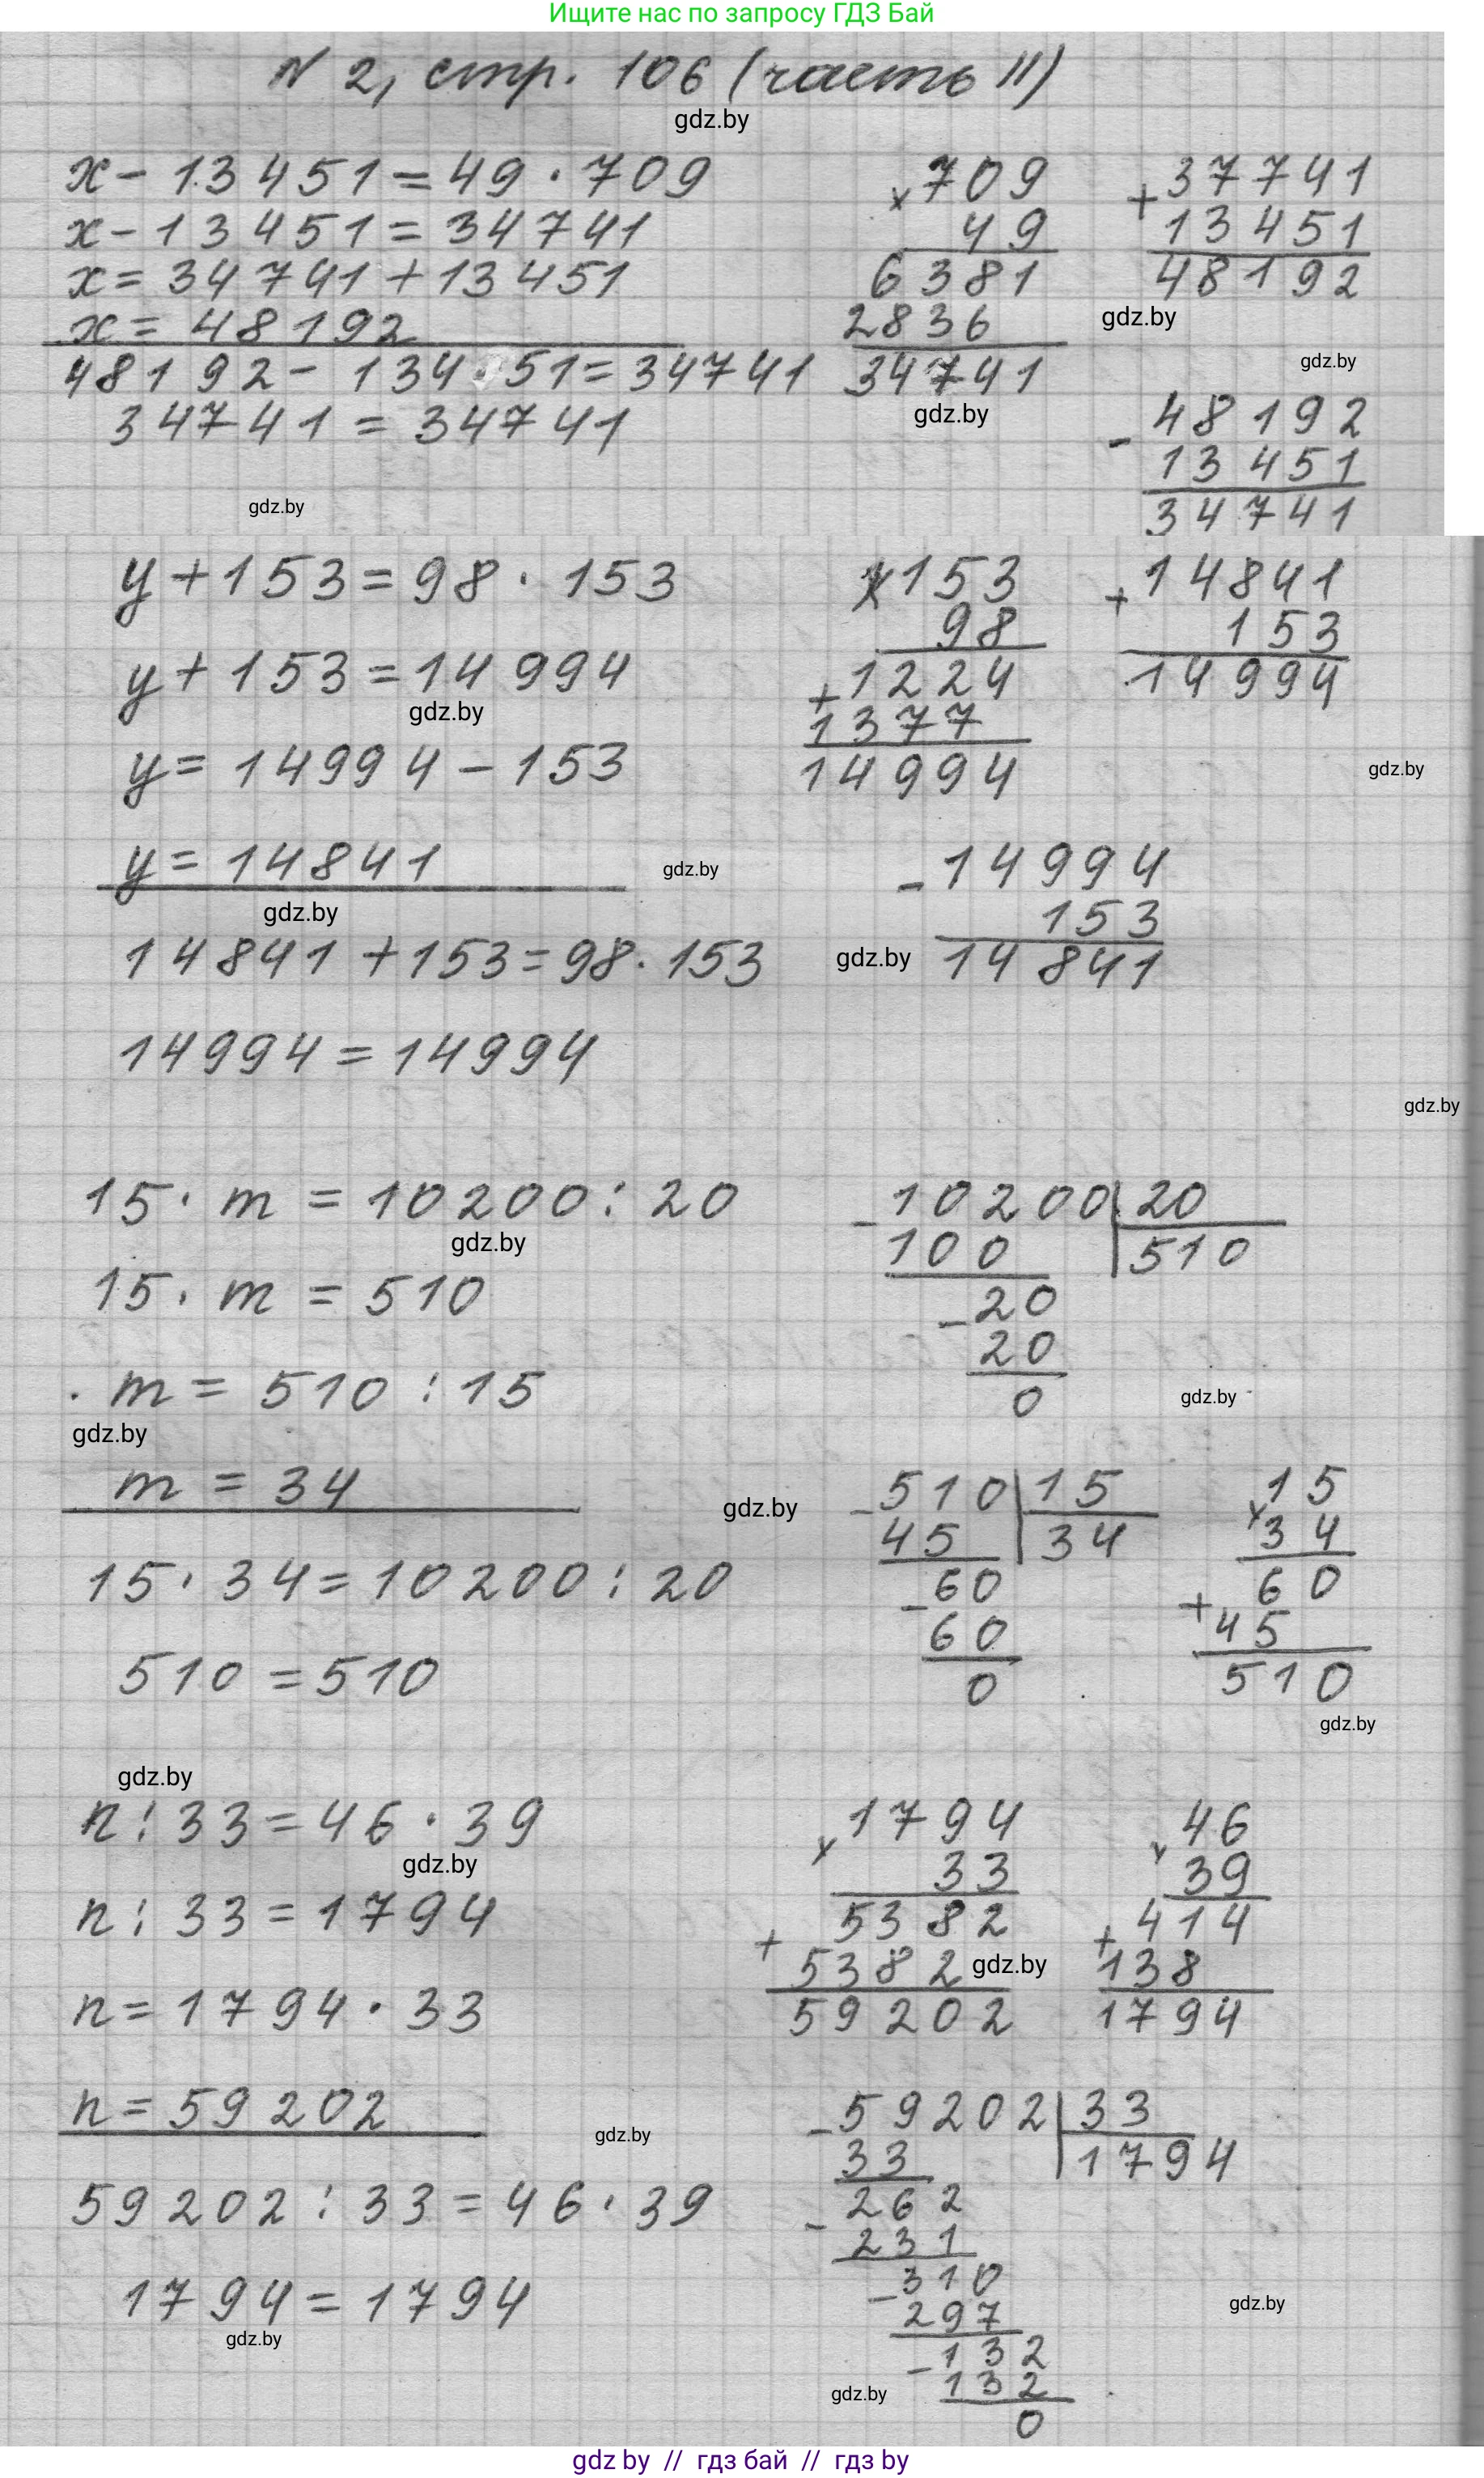 Ищите нас по запросу ГДЗ Бай
N 2, стр. 106 (часть II)
gdz.by
x - 13451 = 49 · 709
x - 13451 = 34741
x = 34741 + 13451
x = 48192
48192 - 13451 = 34741
34741 = 34741
gdz.by
x 709
49
6381
2836
34741
gdz.by
+ 37741
13451
48192
gdz.by
gdz.by
- 48192
13451
34741
y + 153 = 98 · 153
y + 153 = 14994
gdz.by
y = 14994 - 153
y = 14841
gdz.by
14841 + 153 = 98 · 153
14994 = 14994
x 153
98
+ 1224
1377
14994
gdz.by
+ 14841
153
14994
gdz.by
- 14994
153
14841
gdz.by
gdz.by
15 · m = 10200 : 20
gdz.by
15 · m = 510
m = 510 : 15
gdz.by
m = 34
15 · 34 = 10200 : 20
510 = 510
- 10200 | 20
100 | 510
- 20
20
0
gdz.by
gdz.by
- 510 | 15
45 | 34
- 60
60
0
x 15
34
+ 60
45
510
gdz.by
gdz.by
n : 33 = 46 · 39
gdz.by
n : 33 = 1794
n = 1794 · 33
n = 59202
59202 : 33 = 46 · 39
1794 = 1794
gdz.by
x 1794
33
+ 5382
5382
59202
gdz.by
x 46
39
+ 414
138
1794
gdz.by
- 59202 | 33
33 | 1794
- 262
231
- 310
297
- 132
132
0
gdz.by
gdz.by
gdz by // гдз бай // гдз by